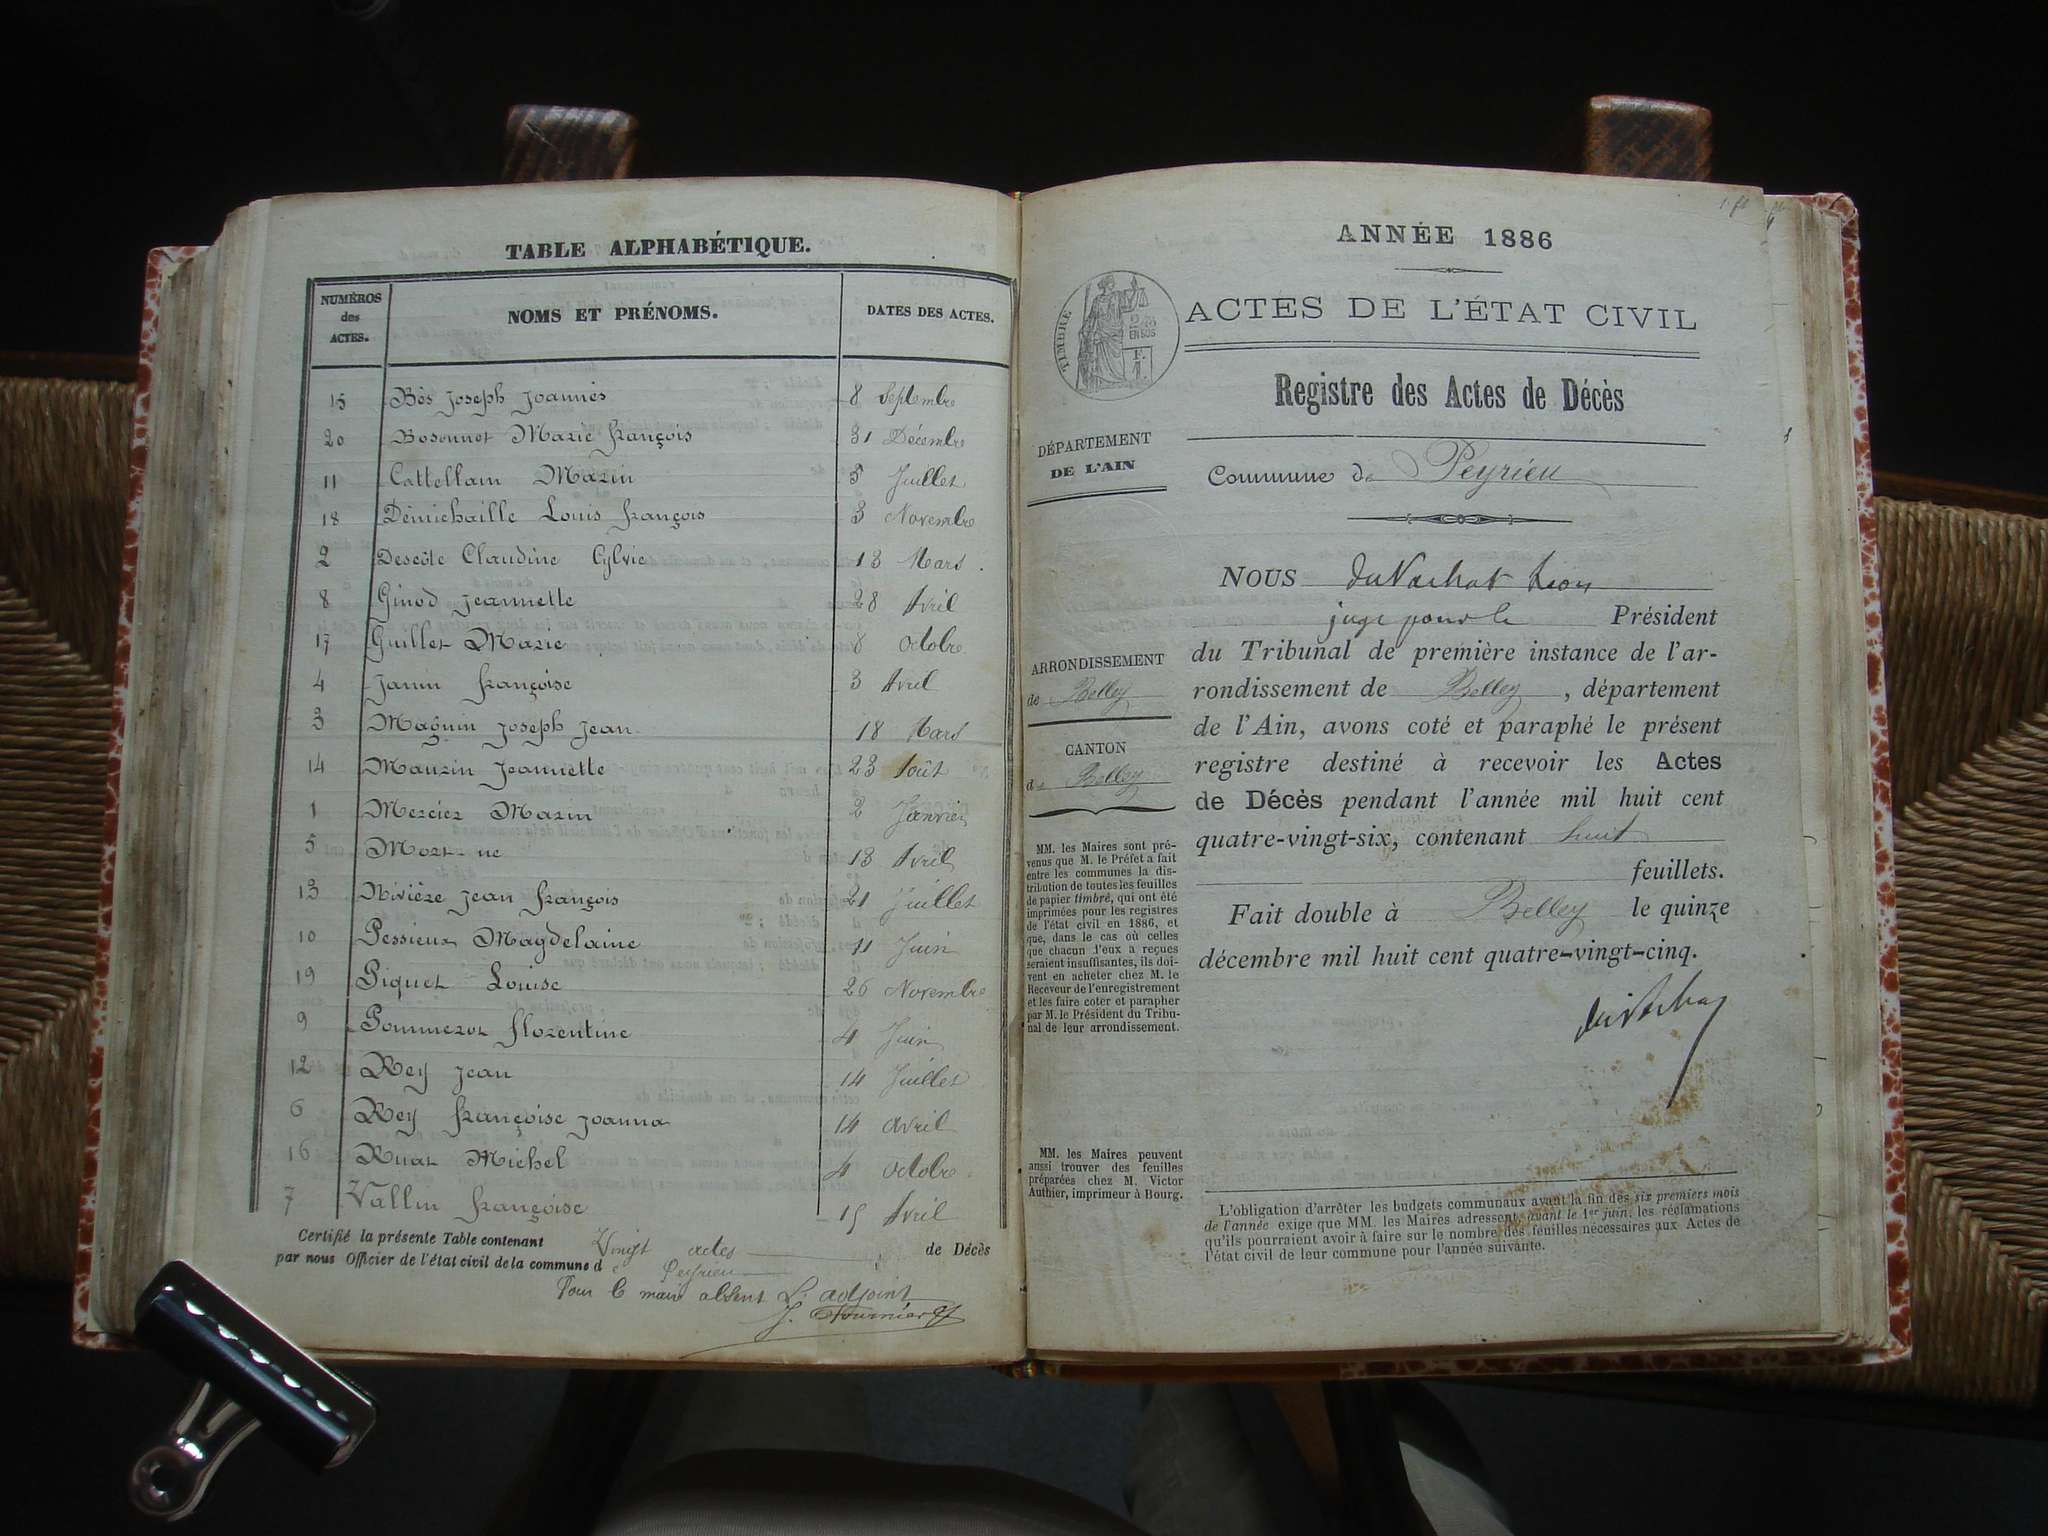 TABLE ALPHABÉTIQUE.
NUMÉROS des ACTES. NOMS ET PRÉNOMS. DATES DES ACTES.
15 Bès Joseph Joannès 8 Septembre
20 Bosonnet Marie François 31 Décembre
11 Cattellain Marin 5 Juillet
18 Démichaille Louis François 3 Novembre
2 Descôte Claudine Sylvie 13 Mars
8 Ginod Jeannette 28 Avril
17 Guillet Marie 8 octobre
4 Janin Françoise 3 Avril
3 Magnin Joseph Jean 18 Mars
14 Maurin Jeannette 23 Août
1 Mercier Marin 2 Janvier
5 Mort-né 13 Avril
13 Nivière Jean François 21 Juillet
10 Pessieux Magdelaine 11 Juin
19 Piquet Louise 26 Novembre
9 Pommerot Florentine 4 Juin
12 Rey Jean 14 Juillet
6 Rey Françoise Joanna 14 avril
16 Ruat Michel 4 octobre
7 Vallin Françoise 15 Avril
Certifié la présente Table contenant Vingt actes de Décès
par nous Officier de l'état civil de la commune de Peyrieu
Pour le maire absent L'adjoint
J. Fournier
ANNÉE 1886
ACTES DE L'ÉTAT CIVIL
TIMBRE
2/10
EN SUS
1 F.
Registre des Actes de Décès
DÉPARTEMENT
DE L'AIN
Commune de Peyrieu
NOUS duVachat Léon
juge pour le Président
du Tribunal de première instance de l'ar-
rondissement de Belley, département
de l'Ain, avons coté et paraphé le présent
registre destiné à recevoir les Actes
de Décès pendant l'année mil huit cent
quatre-vingt-six, contenant huit
feuillets.
Fait double à Belley le quinze
décembre mil huit cent quatre-vingt-cinq.
ARRONDISSEMENT
de Belley
CANTON
de Belley
MM. les Maires sont pré-
venus que M. le Préfet a fait
entre les communes la dis-
tribution de toutes les feuilles
de papier timbré, qui ont été
imprimées pour les registres
de l'état civil en 1886, et
que, dans le cas où celles
que chacun d'eux a reçues
seraient insuffisantes, ils doi-
vent en acheter chez M. le
Receveur de l'enregistrement
et les faire coter et parapher
par M. le Président du Tribu-
nal de leur arrondissement.
MM. les Maires peuvent
aussi trouver des feuilles
préparées chez M. Victor
Authier, imprimeur à Bourg.
L'obligation d'arrêter les budgets communaux avant la fin des six premiers mois
de l'année exige que MM. les Maires adressent, avant le 1er juin, les réclamations
qu'ils pourraient avoir à faire sur le nombre des feuilles nécessaires aux Actes de
l'état civil de leur commune pour l'année suivante.